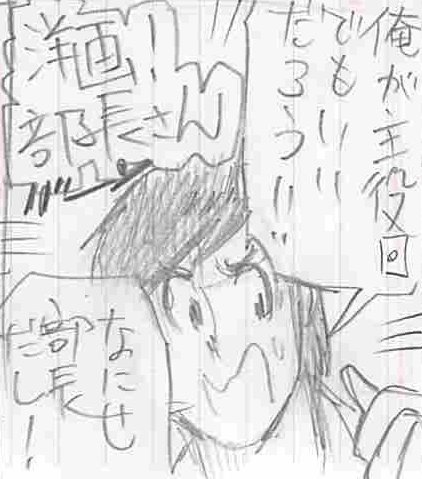 俺が主役回
でもいい
だろう!!
洋画!
部長さん
なにせ
部長
だし!